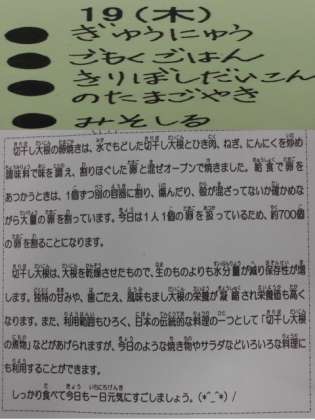 19(木)
ぎゅうにゅう
ごもくごはん
きりぼしだいこん
のたまごやき
みそしる
切干し大根の卵焼きは、水でもどした切干し大根とひき肉、ねぎ、にんにくを炒め
調味料で味を調え、割りほぐした卵と混ぜオーブンで焼きました。給食で卵を
あつかうときは、1個ずつ別の容器に割り、傷んだり、殻が混ざってないか確かめな
がら大量の卵を割っています。今日は1人1個の卵を使っているため、約700個
の卵を割ることになります。
切干し大根は、大根を乾燥させたもので、生のものよりも水分量が減り保存性が増
します。独特の甘みや、歯ごたえ、風味もまし大根の栄養が凝縮され栄養価も高く
なります。また、利用範囲もひろく、日本の伝統的な料理の一つとして「切干し大根
の煮物」などがあげられますが、今日のような焼き物やサラダなどいろいろな料理に
も利用することができます。
しっかり食べて今日も一日元気にすごしましょう。(*^_^*)/